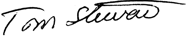 Tom Stewart